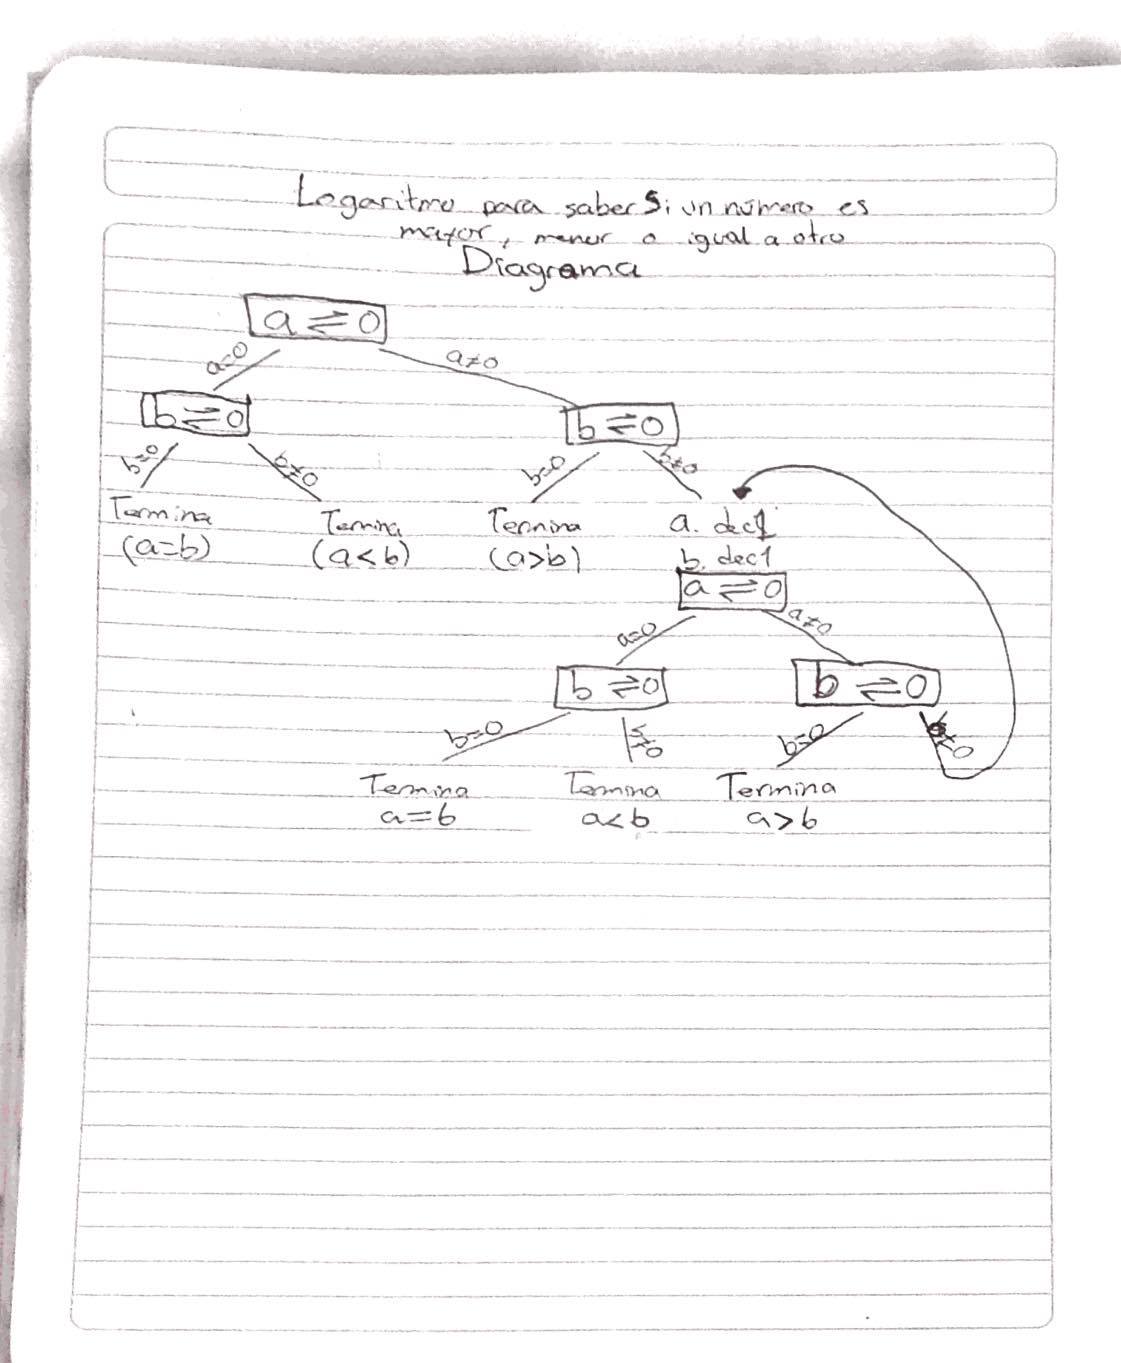 Logaritmo para saber si un número es
mayor, menor o igual a otro
Diagrama
a ⇌ 0
a=0 a≠0
b ⇌ 0 b ⇌ 0
b=0 b≠0 b=0 b≠0
Termina Termina Termina a. dec1
(a=b) (a<b) (a>b) b. dec1
a ⇌ 0
a=0 a≠0
b ⇌ 0 b ⇌ 0
b=0 b≠0 b=0 b≠0
Termina Termina Termina
a=b a<b a>b